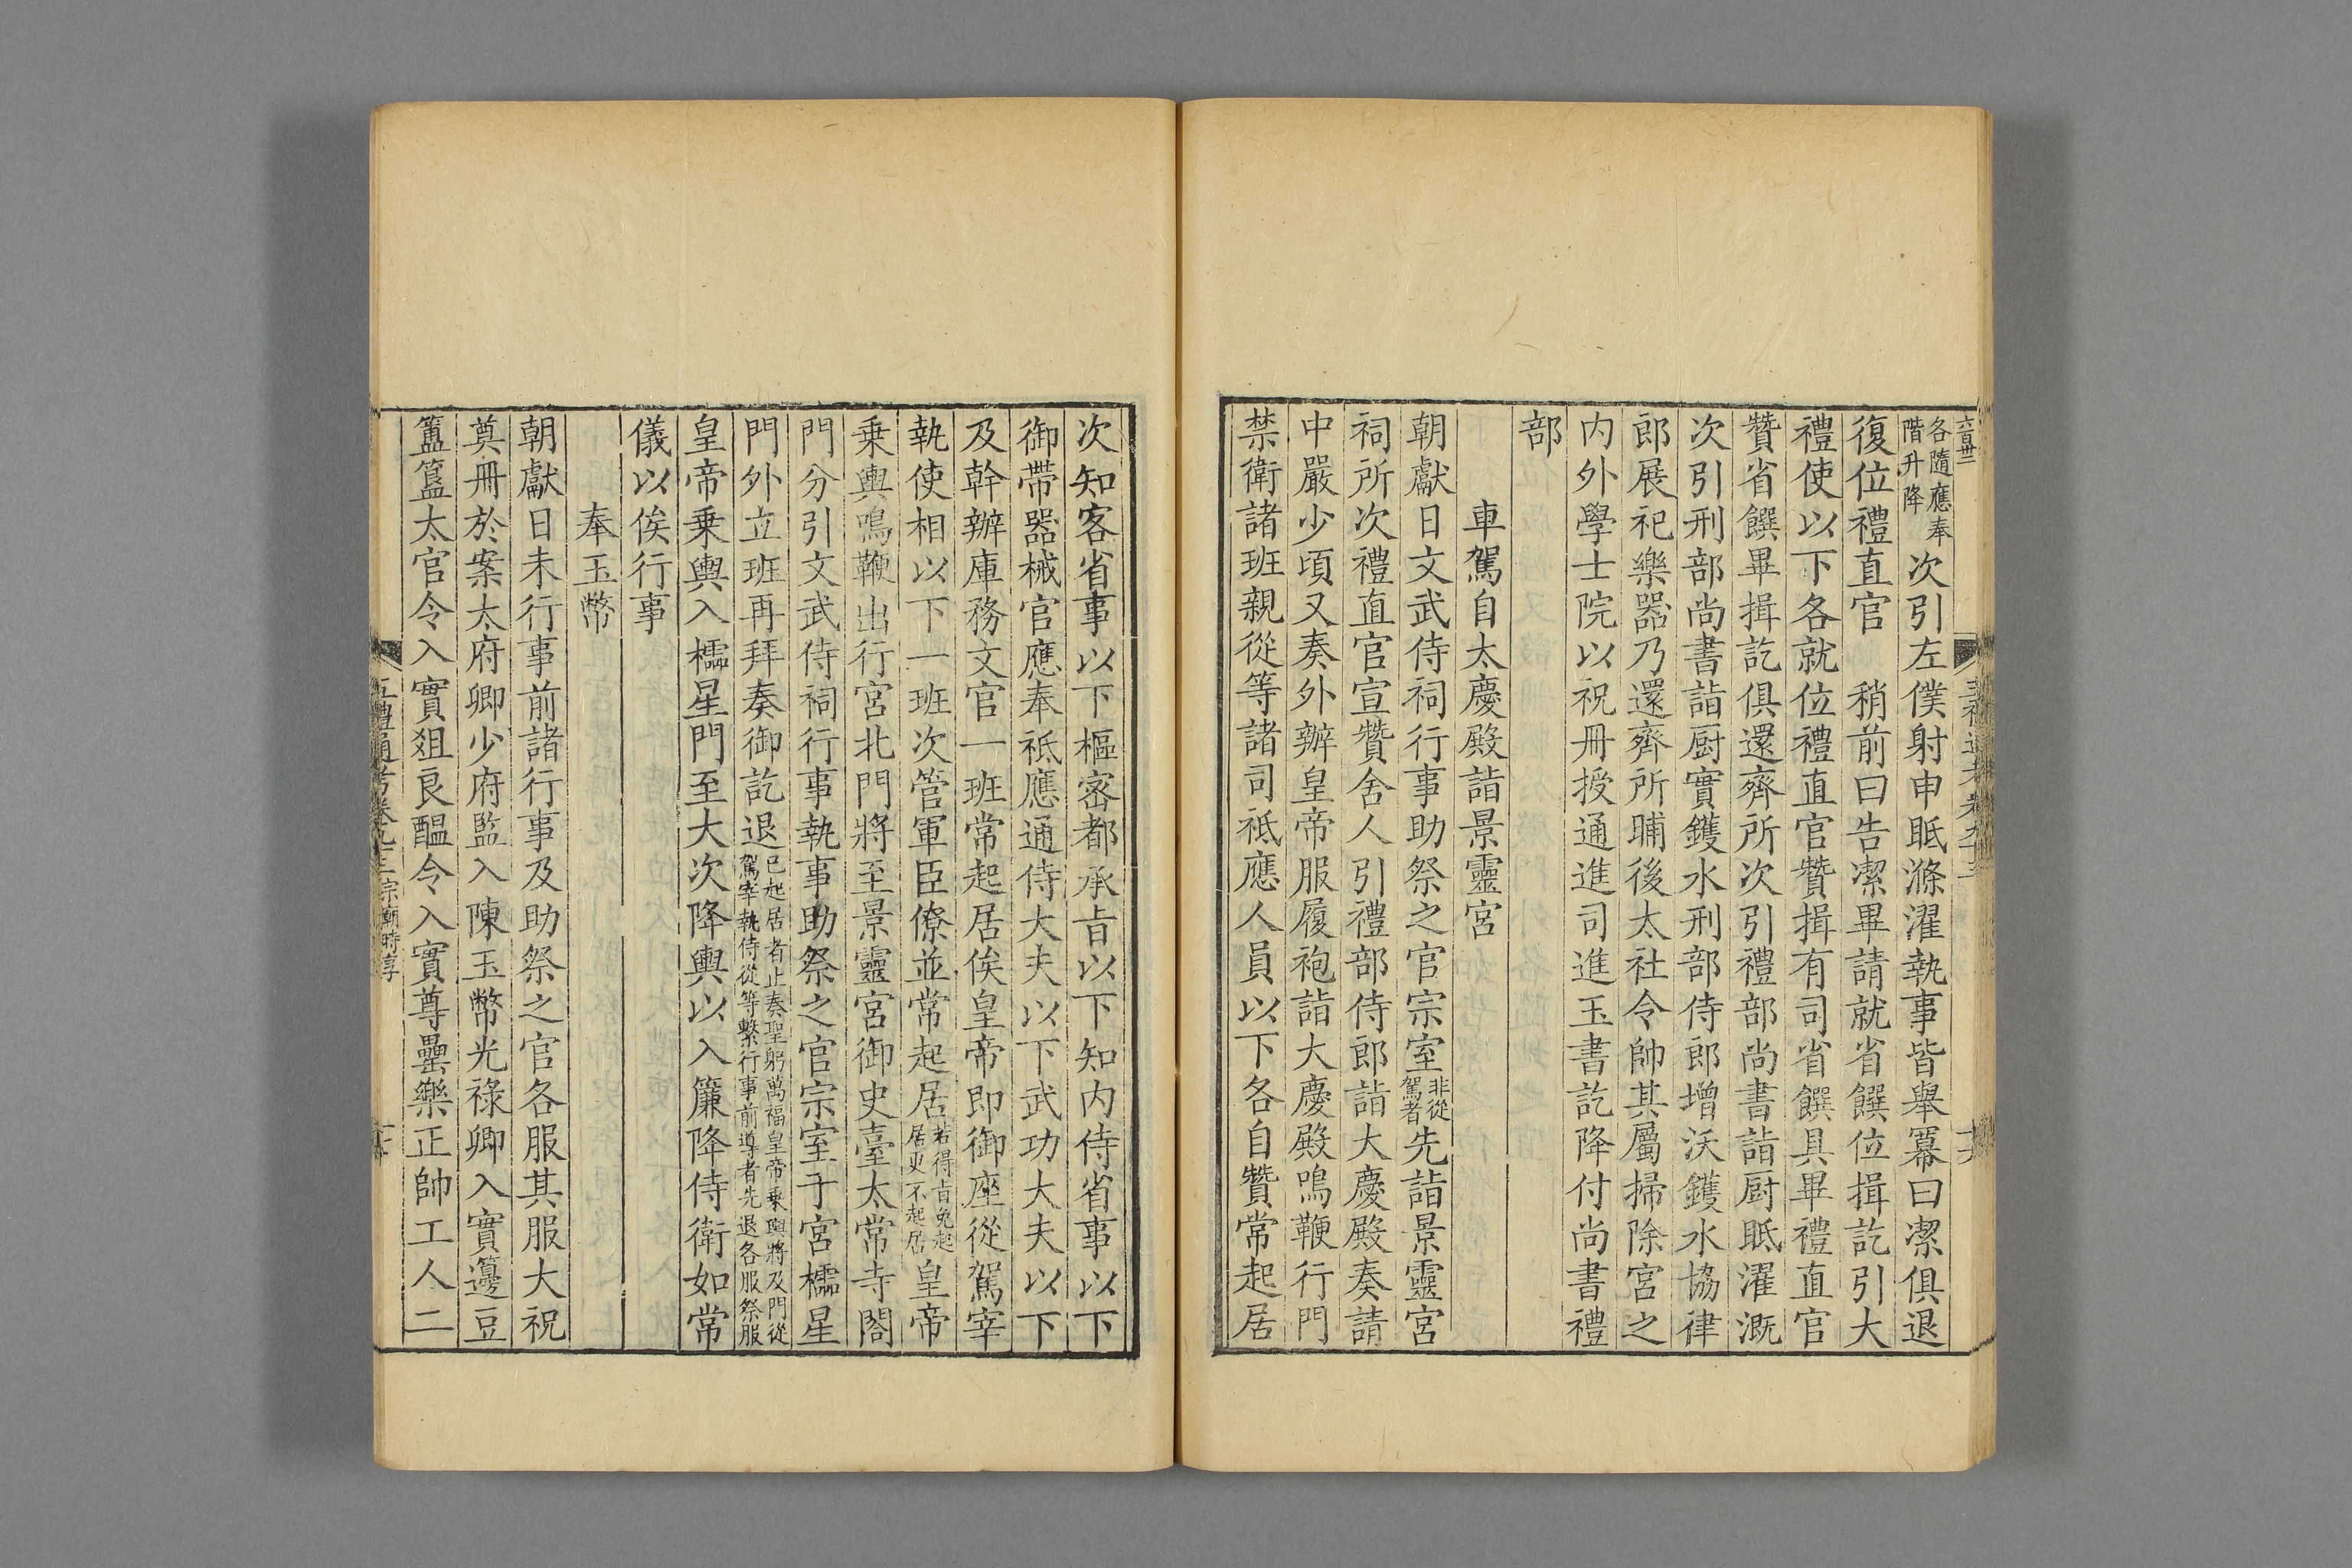 各隨應奉階升降次引左僕射申眡滌濯執事皆舉羃曰潔俱退
復位禮直官 稍前曰告潔畢請就省饌位揖訖引大
禮使以下各就位禮直官贊揖有司省饌具畢禮直官
贊省饌畢揖訖俱還齊所次引禮部尚書詣厨眡濯溉
次引刑部尚書詣厨實鑊水刑部侍郎增沃鑊水協律
郎展祀樂器乃還齊所晡後太社令帥其屬掃除宮之
内外學士院以祝冊授通進司進玉書訖降付尚書禮
部
車駕自太慶殿詣景靈宮
朝獻日文武侍祠行事助祭之官宗室非從駕者先詣景靈宮
祠所次禮直官宣贊舍人引禮部侍郎詣大慶殿奏請
中嚴少頃又奏外辦皇帝服履袍詣大慶殿鳴鞭行門
禁衛諸班親從等諸司祗應人員以下各自贊常起居
次知客省事以下樞密都承㫖以下知内侍省事以下
御帶器械官應奉祗應通侍大夫以下武功大夫以下
及幹辦庫務文官一班常起居俟皇帝即御座從駕宰
執使相以下一班次管軍臣僚並常起居若得㫖免起居更不起居皇帝
乗輿鳴鞭出行宮北門將至景靈宮御史臺太常寺閤
門分引文武侍祠行事執事助祭之官宗室于宮櫺星
門外立班再拜奏御訖退已起居者止奏聖躬萬福皇帝乗輿將及門從駕宰執侍從等繫行事前導者先退各服祭服
皇帝乗輿入櫺星門至大次降輿以入簾降侍衛如常
儀以俟行事
奉玉幣
朝獻日未行事前諸行事及助祭之官各服其服大祝
奠冊於案太府卿少府監入陳玉幣光祿卿入實籩豆
簠簋太官令入實俎良醖令入實尊罍樂正帥工人二
五禮通考卷九十三宗廟時享